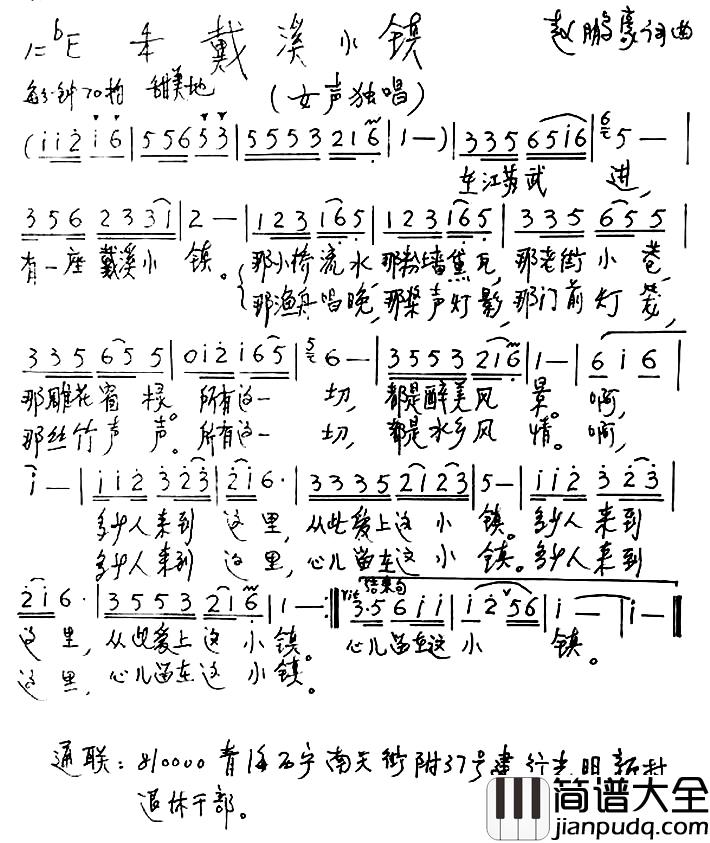 1=♭E 4/4 戴溪小镇 赵鹏豪词曲
每分钟70拍 甜美地 (女声独唱)
(i i 2̇ i 6 | 5 5 6 5 3 | 5 5 5 3 2 1 6 | 1 —) | 3 3 5 6 5 i 6 | 5 — |
在江苏武 进,
3 5 6 2 3 3 1 | 2 — | 1 2 3 1 6 5 | 1 2 3 1 6 5 | 3 3 5 6 5 5 |
有一座 戴溪小 镇。 那小桥流水,那粉墙黛瓦,那老街小 巷,
那渔舟唱晚,那桨声灯影,那门前灯 笼,
3 3 5 6 5 5 | 0 i 2̇ i 6 5 | 6 — | 3 5 5 3 2 1 6 | 1 — | 6 i 6 |
那雕花窗 棂。所有这一 切, 都是醉美风 景。啊,
那丝竹声 声。所有这一 切, 都是水乡风 情。啊,
i — | i i 2̇ 3̇ 2̇ 3̇ | 2̇ i 6 · | 3 3 3 5 2 1 2 3 | 5 — | i i 2̇ 3̇ 2̇ 3̇ |
多少人来到 这里, 从此爱上这小 镇。多少人来到
多少人来到 这里, 心儿留在这小 镇。多少人来到
2̇ i 6 · | 3 5 5 3 2 1 6 | 1 — :‖ rit 结束句 3 · 5 6 i i | i 2̇ 5 6 | i — | i — ‖
这里, 从此爱上这小镇。 心儿留在这小 镇。
这里, 心儿留在这小镇。
通联:810000 青海西宁南大街附37号建行光明新村
退休干部。
简谱大全
jianpudq.com